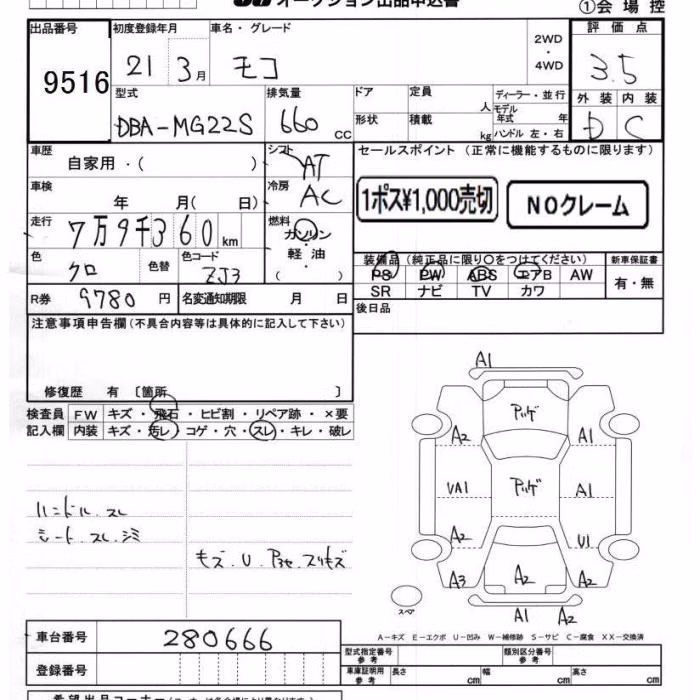 オークション出品申込書
①会場控
出品番号 初度登録年月 車名・グレード 2WD・4WD 評価点
9516 21 3月 モコ 3.5
型式 排気量 ドア 定員 人 ディーラー・並行 外装 内装
DBA-MG22S 660 cc 形状 積載 kg モデル年式 年 ハンドル 左・右 D C
車歴 シフト セールスポイント (正常に機能するものに限ります)
自家用・( ) AT
車検 冷房 1ポス¥1,000売切 NOクレーム
年 月( 日) AC
走行 燃料
7万9千360km ガソリン・軽油
色 色替 色コード ( ) 装備品 (純正品に限り○をつけてください) 新車保証書
クロ ZJ3 PS PW ABS エアB AW 有・無
SR ナビ TV カワ
R券 9780円 名変通知期限 月 日 後日品
注意事項申告欄 (不具合内容等は具体的に記入して下さい)
修復歴 有 〔箇所 〕
検査員 FW キズ・飛石・ヒビ割・リペア跡・×要
記入欄 内装 キズ・汚レ・コゲ・穴・スレ・キレ・破レ
A1
アハゲ
A2 A1
VA1 アハゲ A1
A2 U1
A3 A2 A2
スペア A1 A2
ハンドル スレ
シート スレ シミ
キズ・U
スリキズ
A-キズ E-エクボ U-凹み W-補修跡 S-サビ C-腐食 XX-交換済
車台番号 280666
型式指定番号 参考 類別区分番号 参考
登録番号 車庫証明用 参考 長さ cm 幅 cm 高さ cm
希望出品コーナー